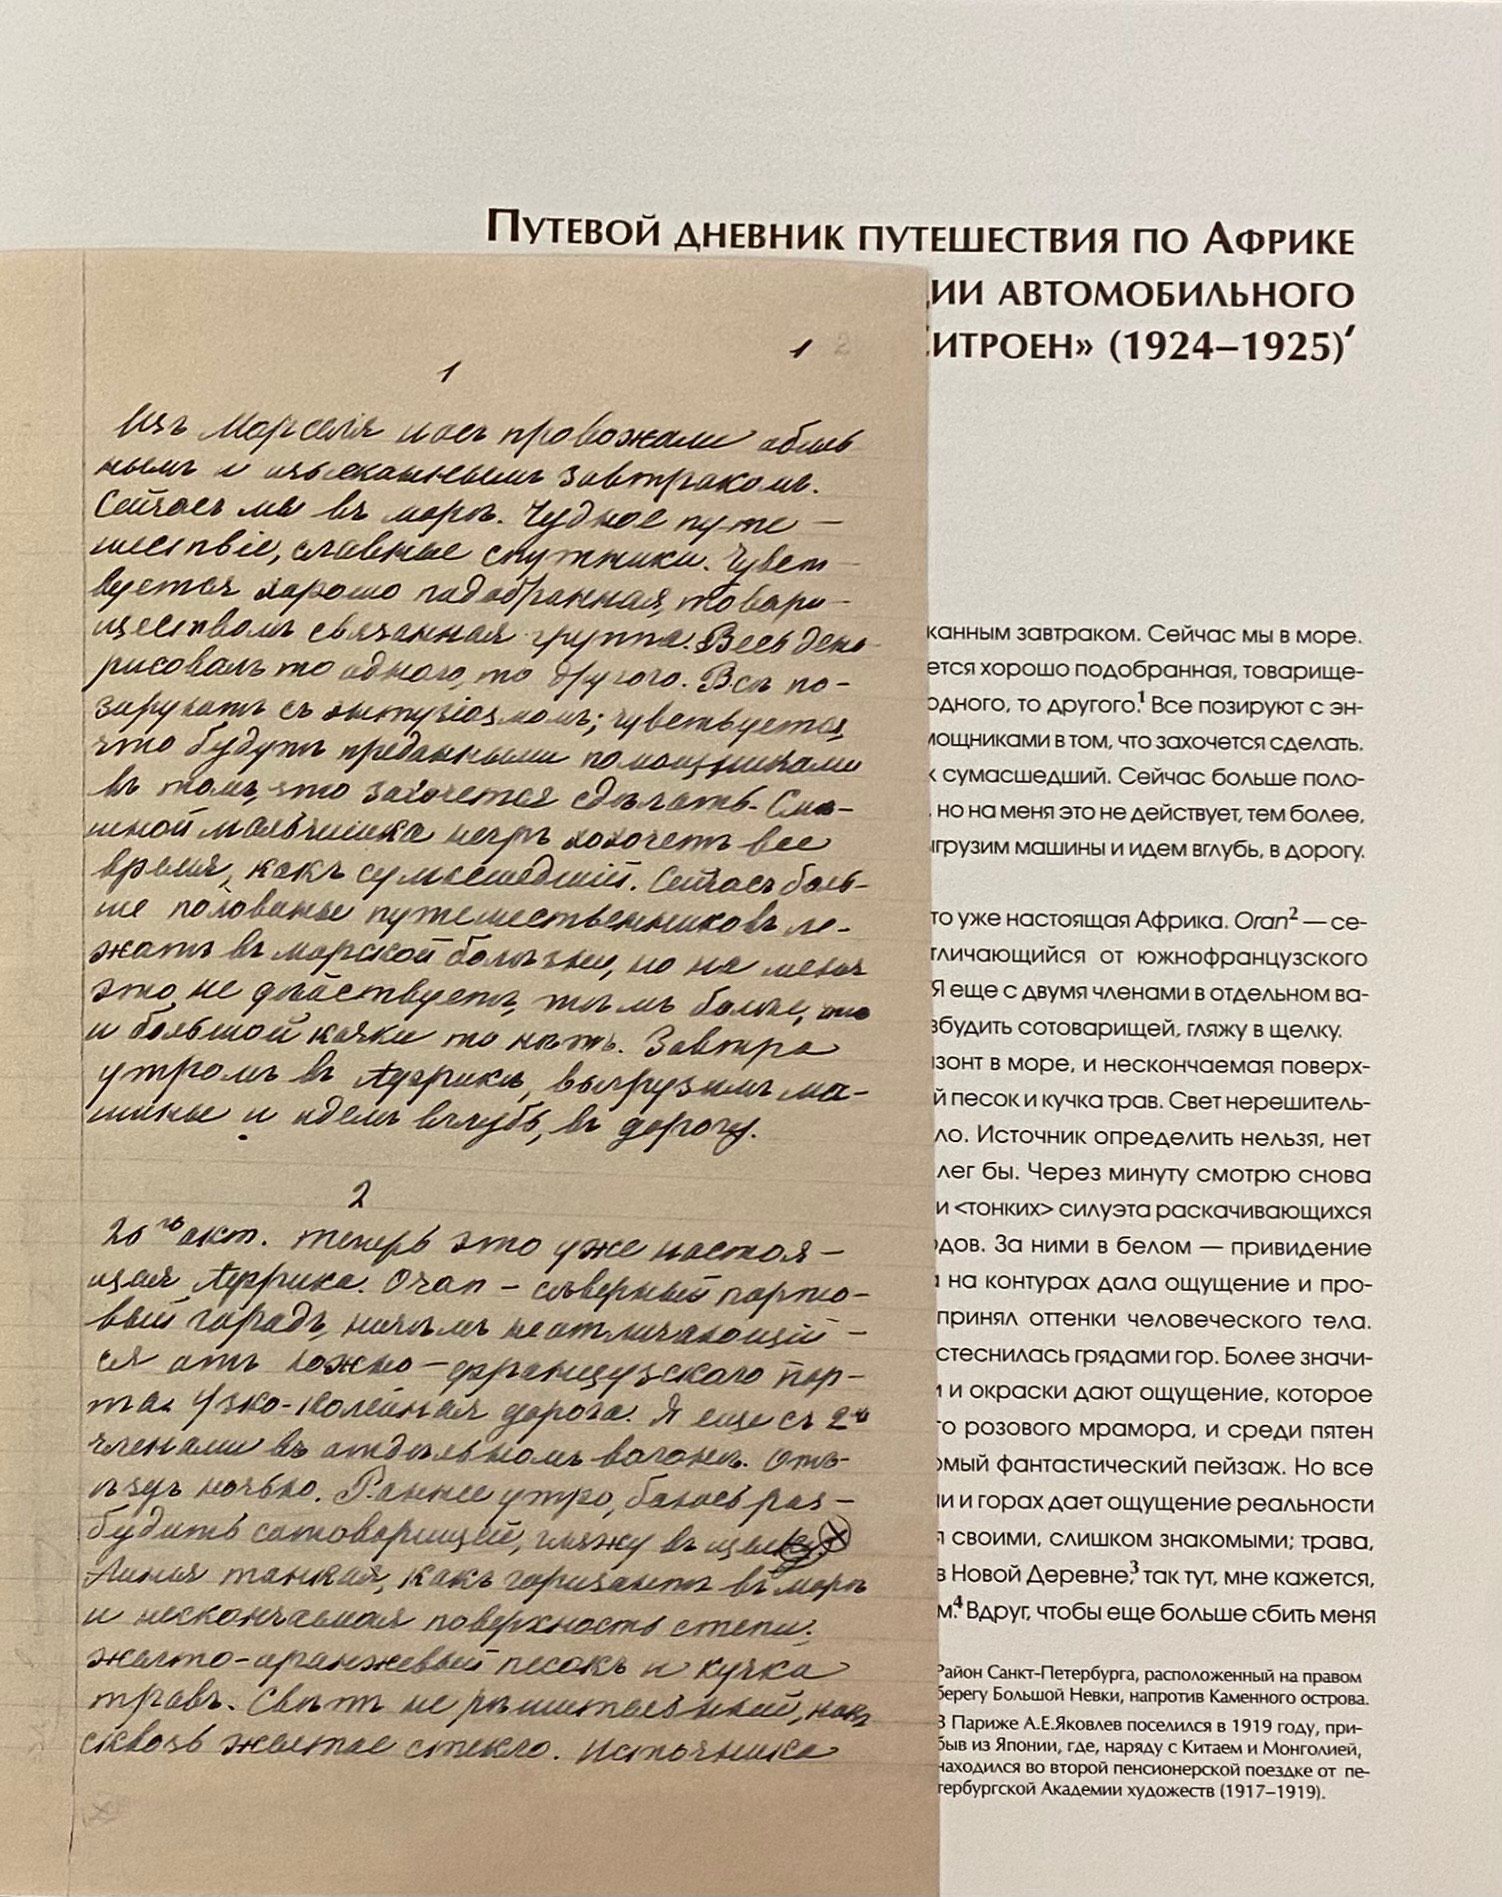 Путевой дневник путешествия по Африке
ции автомобильного
Ситроен» (1924–1925)
1
1 2
Изъ Марселя насъ провожали обиль
нымъ и изысканнымъ завтракомъ.
Сейчасъ мы въ морѣ. Чудное путе –
шествіе, славные спутники. Чувст –
вуется хорошо подобранная, товари –
ществомъ связанная группа. Весь день
рисовалъ то одного, то другого. Всѣ по-
зируютъ съ энтузіазмомъ; чувствуется,
что будутъ преданными помощниками
въ томъ, что захочется сдѣлать. Смѣ-
шной мальчишка негръ хохочетъ все
время, какъ сумасшедшій. Сейчасъ боль-
ше половины путешественниковъ ле-
жатъ въ морской болѣзни, но на меня
это не дѣйствуетъ, тѣмъ болѣе, что
и большой качки то нѣтъ. Завтра
утромъ въ Африкѣ, выгрузимъ ма-
шины и идемъ вглубь, въ дорогу.
2
20го окт. Теперь это уже настоя –
щая Африка. Oran – сѣверный порто-
вый городъ, ничѣмъ не отличающій –
ся отъ южно – французскаго пор-
та. Узко-колейная дорога. Я еще съ 2мя
членами въ отдѣльномъ вагонѣ. Отъ-
ѣздъ ночью. Раннее утро, боюсь раз –
будить сотоварищей, гляжу въ щелку.
Линия тонкая, какъ горизонтъ въ морѣ
и нескончаемая поверхность степи;
желто-оранжевый песокъ и кучка
травъ. Свѣтъ не рѣшительный, какъ
сквозь желтое стекло. Источника
канным завтраком. Сейчас мы в море.
ется хорошо подобранная, товарище-
одного, то другого.1 Все позируют с эн-
мощниками в том, что захочется сделать.
к сумасшедший. Сейчас больше поло-
, но на меня это не действует, тем более,
ыгрузим машины и идем вглубь, в дорогу.
то уже настоящая Африка. Oran2 — се-
тличающийся от южнофранцузского
Я еще с двумя членами в отдельном ва-
збудить сотоварищей, гляжу в щелку.
изонт в море, и нескончаемая поверх-
й песок и кучка трав. Свет нерешитель-
ло. Источник определить нельзя, нет
лег бы. Через минуту смотрю снова
и <тонких> силуэта раскачивающихся
дов. За ними в белом — привидение
а на контурах дала ощущение и про-
принял оттенки человеческого тела.
стеснилась грядами гор. Более значи-
и и окраски дают ощущение, которое
го розового мрамора, и среди пятен
омый фантастический пейзаж. Но все
ми и горах дает ощущение реальности
я своими, слишком знакомыми; трава,
в Новой Деревне,3 так тут, мне кажется,
м.4 Вдруг, чтобы еще больше сбить меня
Район Санкт-Петербурга, расположенный на правом
берегу Большой Невки, напротив Каменного острова.
В Париже А.Е.Яковлев поселился в 1919 году, при-
быв из Японии, где, наряду с Китаем и Монголией,
находился во второй пенсионерской поездке от пе-
тербургской Академии художеств (1917–1919).